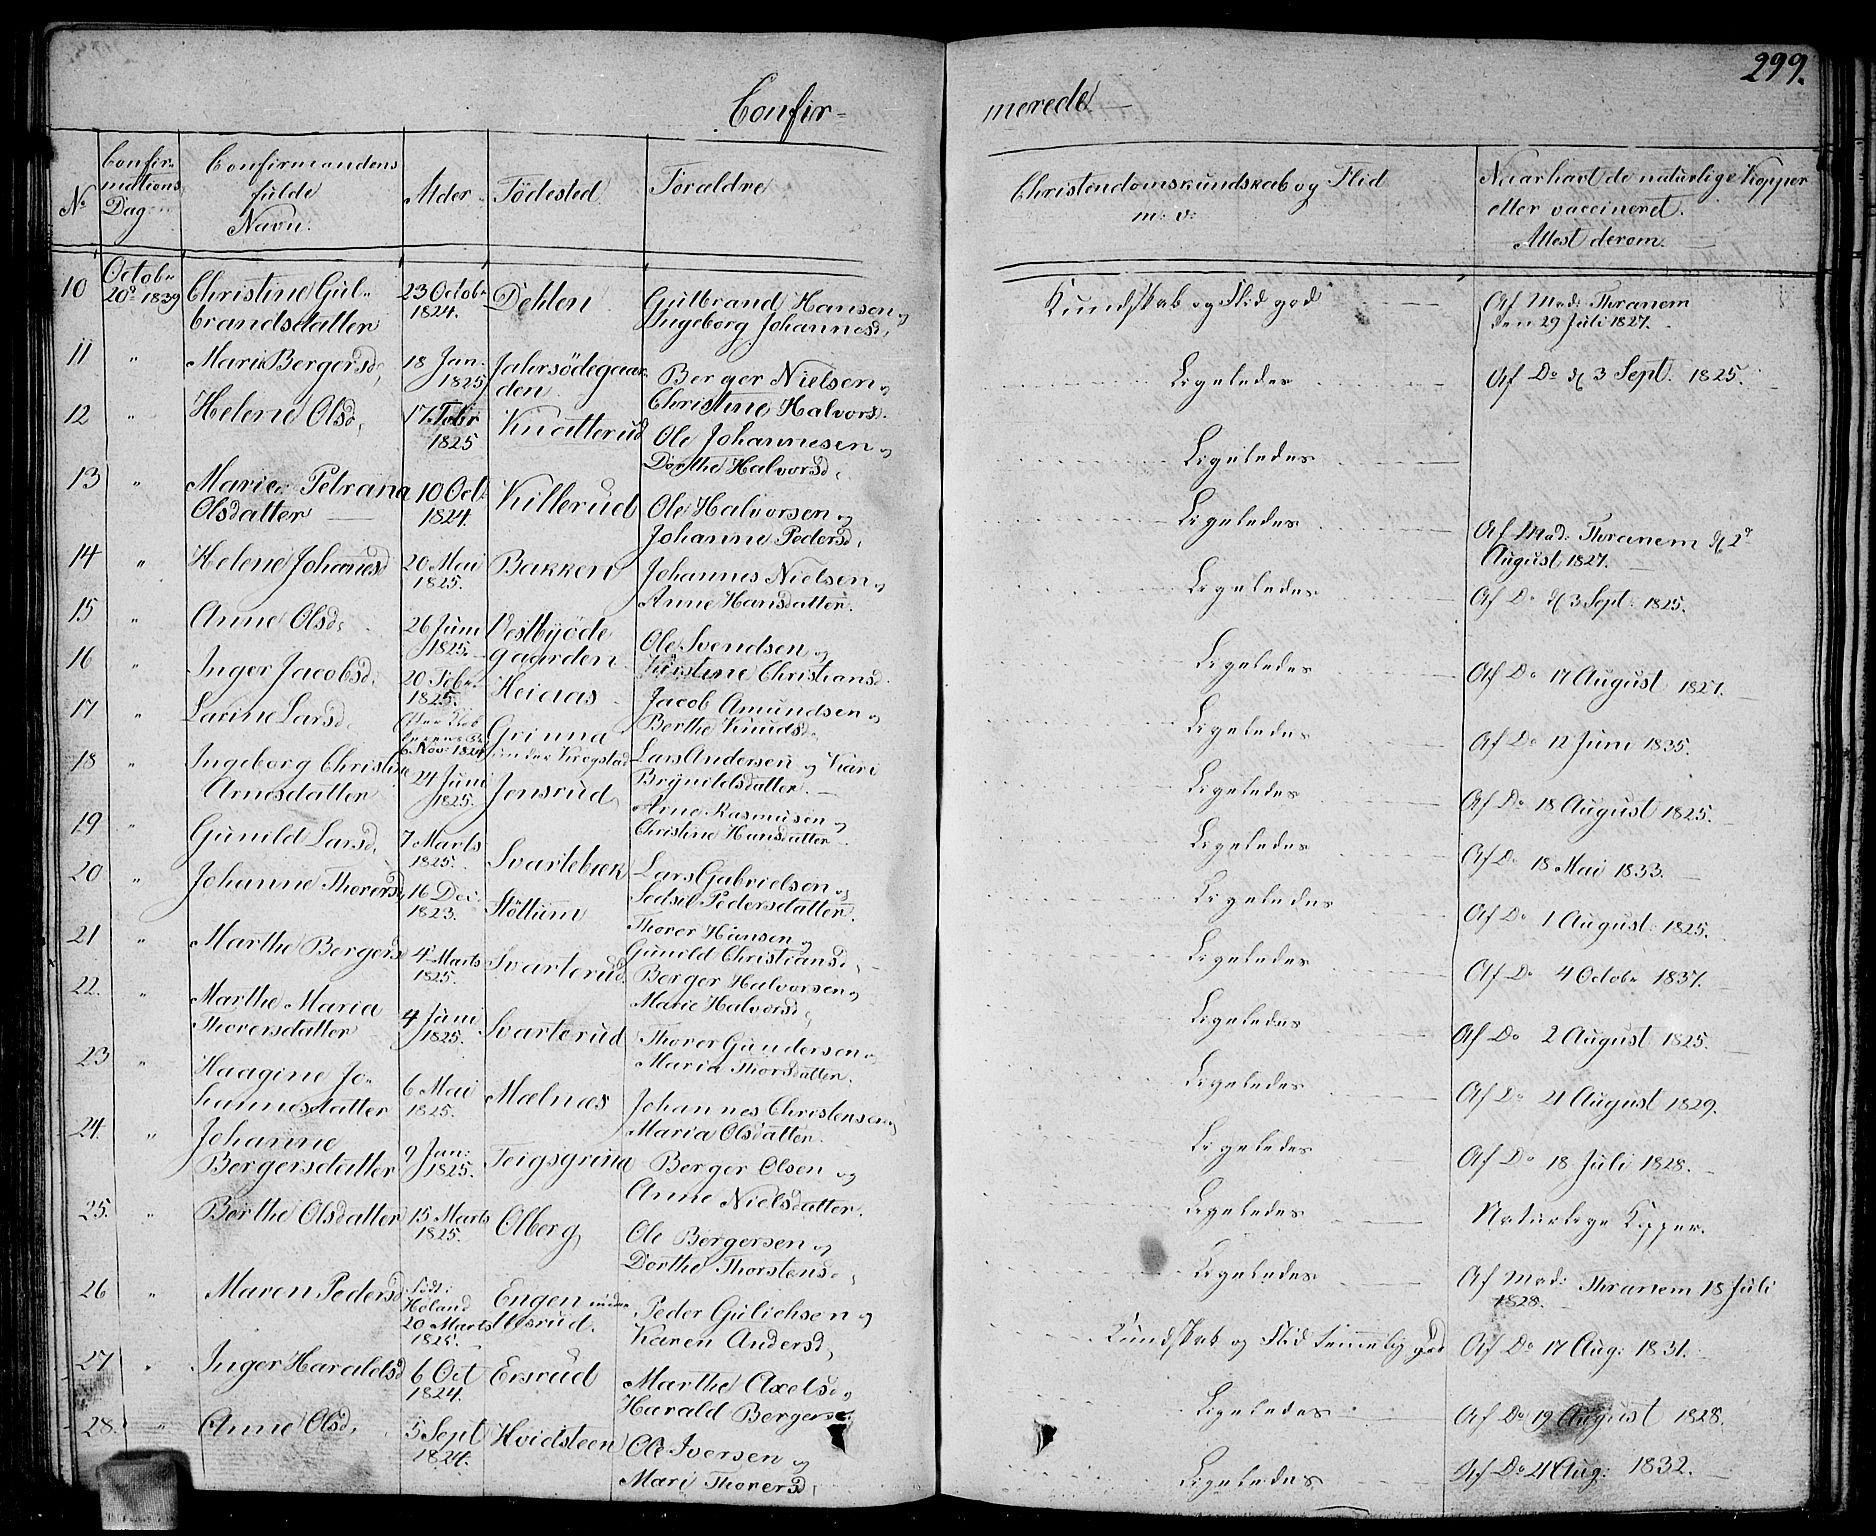 299.
Confir-
merede
No
Confir-
mations
Dag
Confirmandens
fulde
Navn.
Alder
Födested
Foraldre
Christendomskundskab og Flid
m: v:
Naar havt de naturlige Kopper
eller vaccineret.
Attest derom.
10 Octobr 20de 1839 Christine Gul- 23 Octobr Dehlen Gulbrand Hansen og Kundskab og Flid god Af Mad: Thranem
brandsdatter 1824. Ingeborg Johannesd, den 29 Juli 1827.
11 " Mari Bergersd, 18 Jan: Jahrsödegaar- Berger Nielsen og Ligeledes Af Do d/ 3 Sept. 1825.
1825 den. Christine Halvorsd.
12 " Helene Olsd, 17 Febr Knatterud Ole Johannesen og Ligeledes
1825 Dorthe Halvorsd,
13 " Marie Petrana 10 Oct. Killerud Ole Halvorsen og Ligeledes Af Mad: Thranem d/ 2d
Olsdatter 1824. Johanne Pedersd, August 1827.
14 " Helene Johannesd 20 Mai Bakken Johannes Nielsen og Ligeledes Af Do d/ 3 Sept: 1825.
1825. Anne Hansdatter.
15 " Anne Olsd, 26 Juni Vestbyöde Ole Svendsen og Ligeledes Af Do 17 August 1827.
1825. gaarden Kristine Christiansd.
16 " Inger Jacobsd, 20 Febr. Heiaas Jacob Amundsen og Ligeledes Af Do 12 Juni 1835.
1825. Berthe Knudsd,
17 " Larine Larsd, Grinna Lars Andersen og Kari Ligeledes Af Do 18 August 1825.
6 Nov: 1824 under Kregstad Brynildsdatter.
18 " Ingeborg Christine 24 Juni Jonsrud Arne Rasmusen og Ligeledes Af Do 18 Mai 1833.
Arnesdatter 1825. Christine Hansdatter
19 " Gunild Larsd, 7 Marts Svartebæk Lars Gabrielsen og Ligeledes Af Do 1 August: 1825.
1825. Sedsil Pedersdatter.
20 " Johanne Thorersd, 16 Dec. Stöttum Thorer Hansen og Ligeledes Af Do 4 Octobr 1837.
1823. Gunild Christiansd,
21 " Marthe Bergersd 4 Marts Svarterud. Berger Halvorsen og Ligeledes Af Do 2 August 1825.
1825. Marie Halvorsd,
22. " Marthe Maria 4 Juni Svarterud Thorer Gundersen og Ligeledes Af Do 21 August 1829.
Thorersdatter 1825. Maria Thorsdatter.
23 " Haagine Jo- 6 Mai Mælnæs Johannes Christensen og Ligeledes Af Do 18 Juli 1828.
hannesdatter 1825. Maria Olsdatter.
24. " Johanne 9 Jan: Teigsgrina Berger Olsen og Ligeledes Naturlige Kopper.
Bergersdatter 1825. Anne Nielsdatter.
25. " Berthe Olsdatter 15 Marts Olberg Ole Bergersen og Ligeledes Af Mad: Thranem 18 Juli
1825. Dorthe Thorstensd, 1828.
26 " Maren Pedersd Födt: Höland Engen under Peder Gulichsen og Kundskab og Flid temmelig god Af Do 17 Aug: 1831.
20 Marts 1825. Ussrud. Karen Andersd,
27 " Inger Haraldsd 6 Oct Ersrud Marthe Axelsd og Ligeledes Af Do 19 August 1828.
1824. Harald Bergersen
28. " Anne Olsd, 5 Sept Hvidsteen Ole Iversen og Ligeledes Af Do 24 Aug: 1832.
1824. Mari Thorersd,